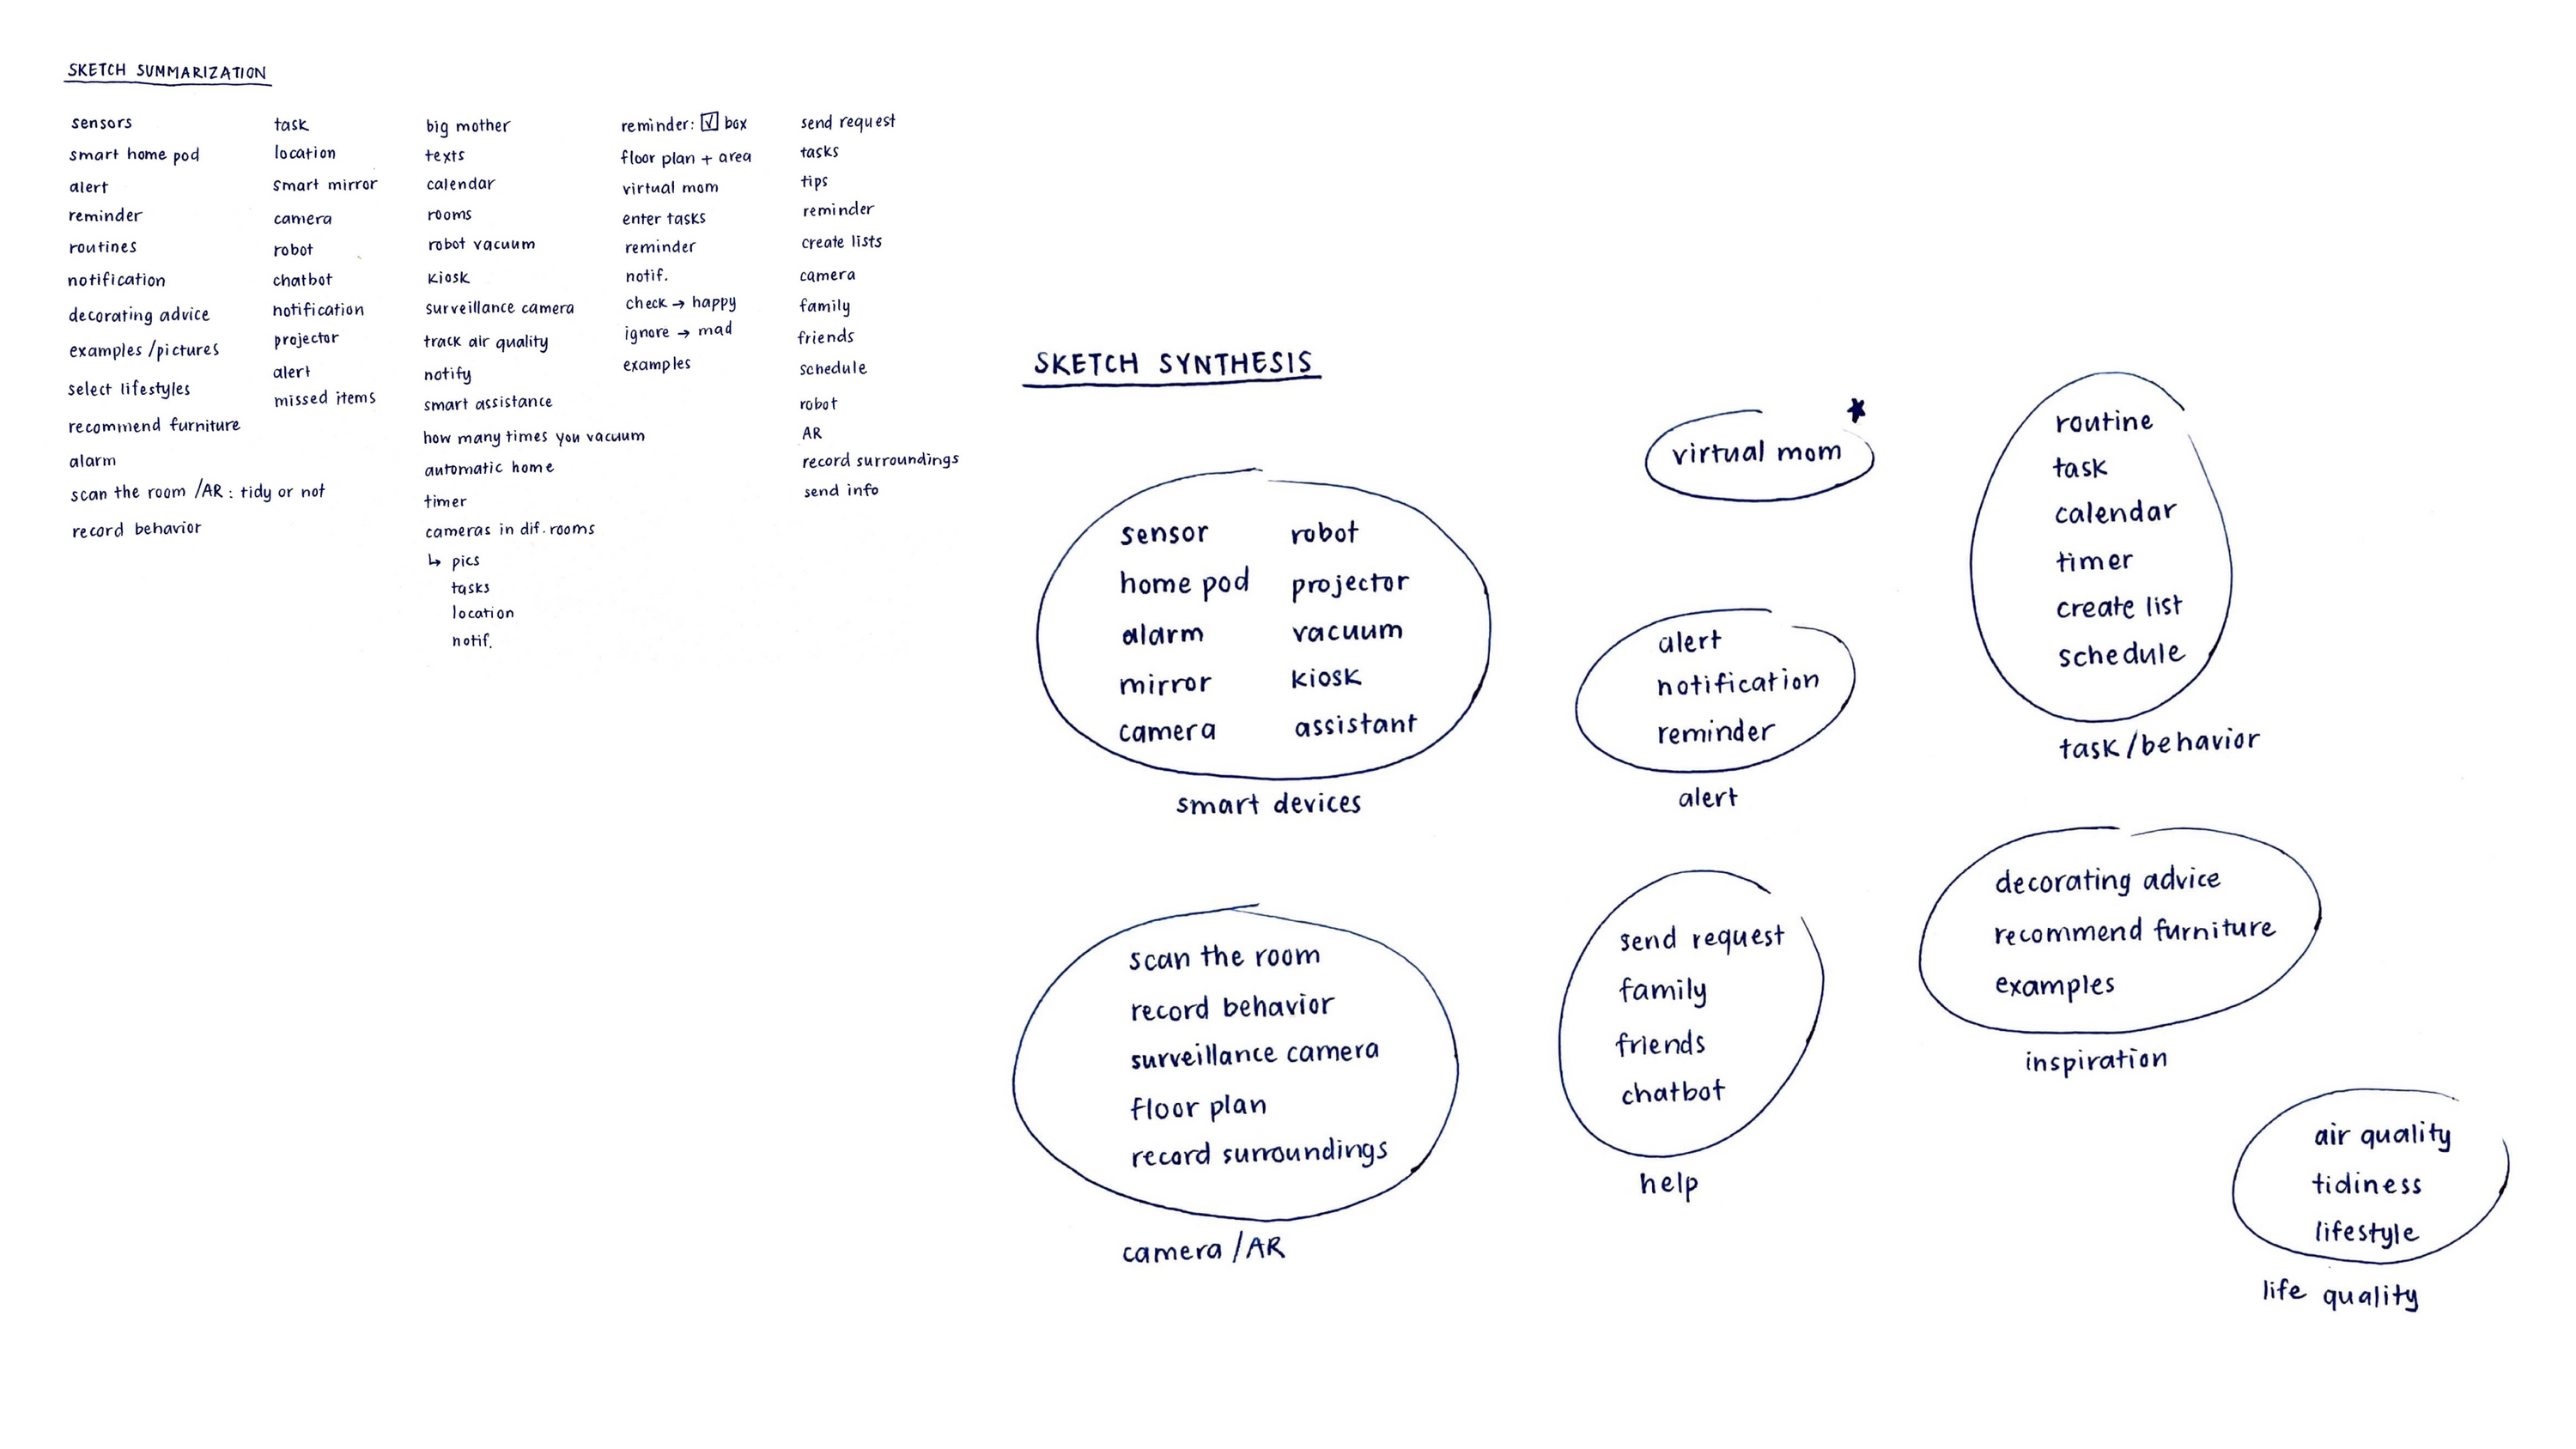 SKETCH SUMMARIZATION
sensors
smart home pod
alert
reminder
routines
notification
decorating advice
examples/pictures
select lifestyles
recommend furniture
alarm
scan the room /AR: tidy or not
record behavior
task
location
smart mirror
camera
robot
chatbot
notification
projector
alert
missed items
big mother
texts
calendar
rooms
robot vacuum
kiosk
surveillance camera
track air quality
notify
smart assistance
how many times you vacuum
automatic home
timer
cameras in dif. rooms
↳ pics
tasks
location
notif.
reminder: ☑ box
floor plan + area
virtual mom
enter tasks
reminder
notif.
check → happy
ignore → mad
examples
send request
tasks
tips
reminder
create lists
camera
family
friends
schedule
robot
AR
record surroundings
send info
SKETCH SYNTHESIS
sensor
home pod
alarm
mirror
camera
robot
projector
vacuum
kiosk
assistant
smart devices
virtual mom
alert
notification
reminder
alert
routine
task
calendar
timer
create list
schedule
task/behavior
scan the room
record behavior
surveillance camera
floor plan
record surroundings
camera/AR
send request
family
friends
chatbot
help
decorating advice
recommend furniture
examples
inspiration
air quality
tidiness
lifestyle
life quality